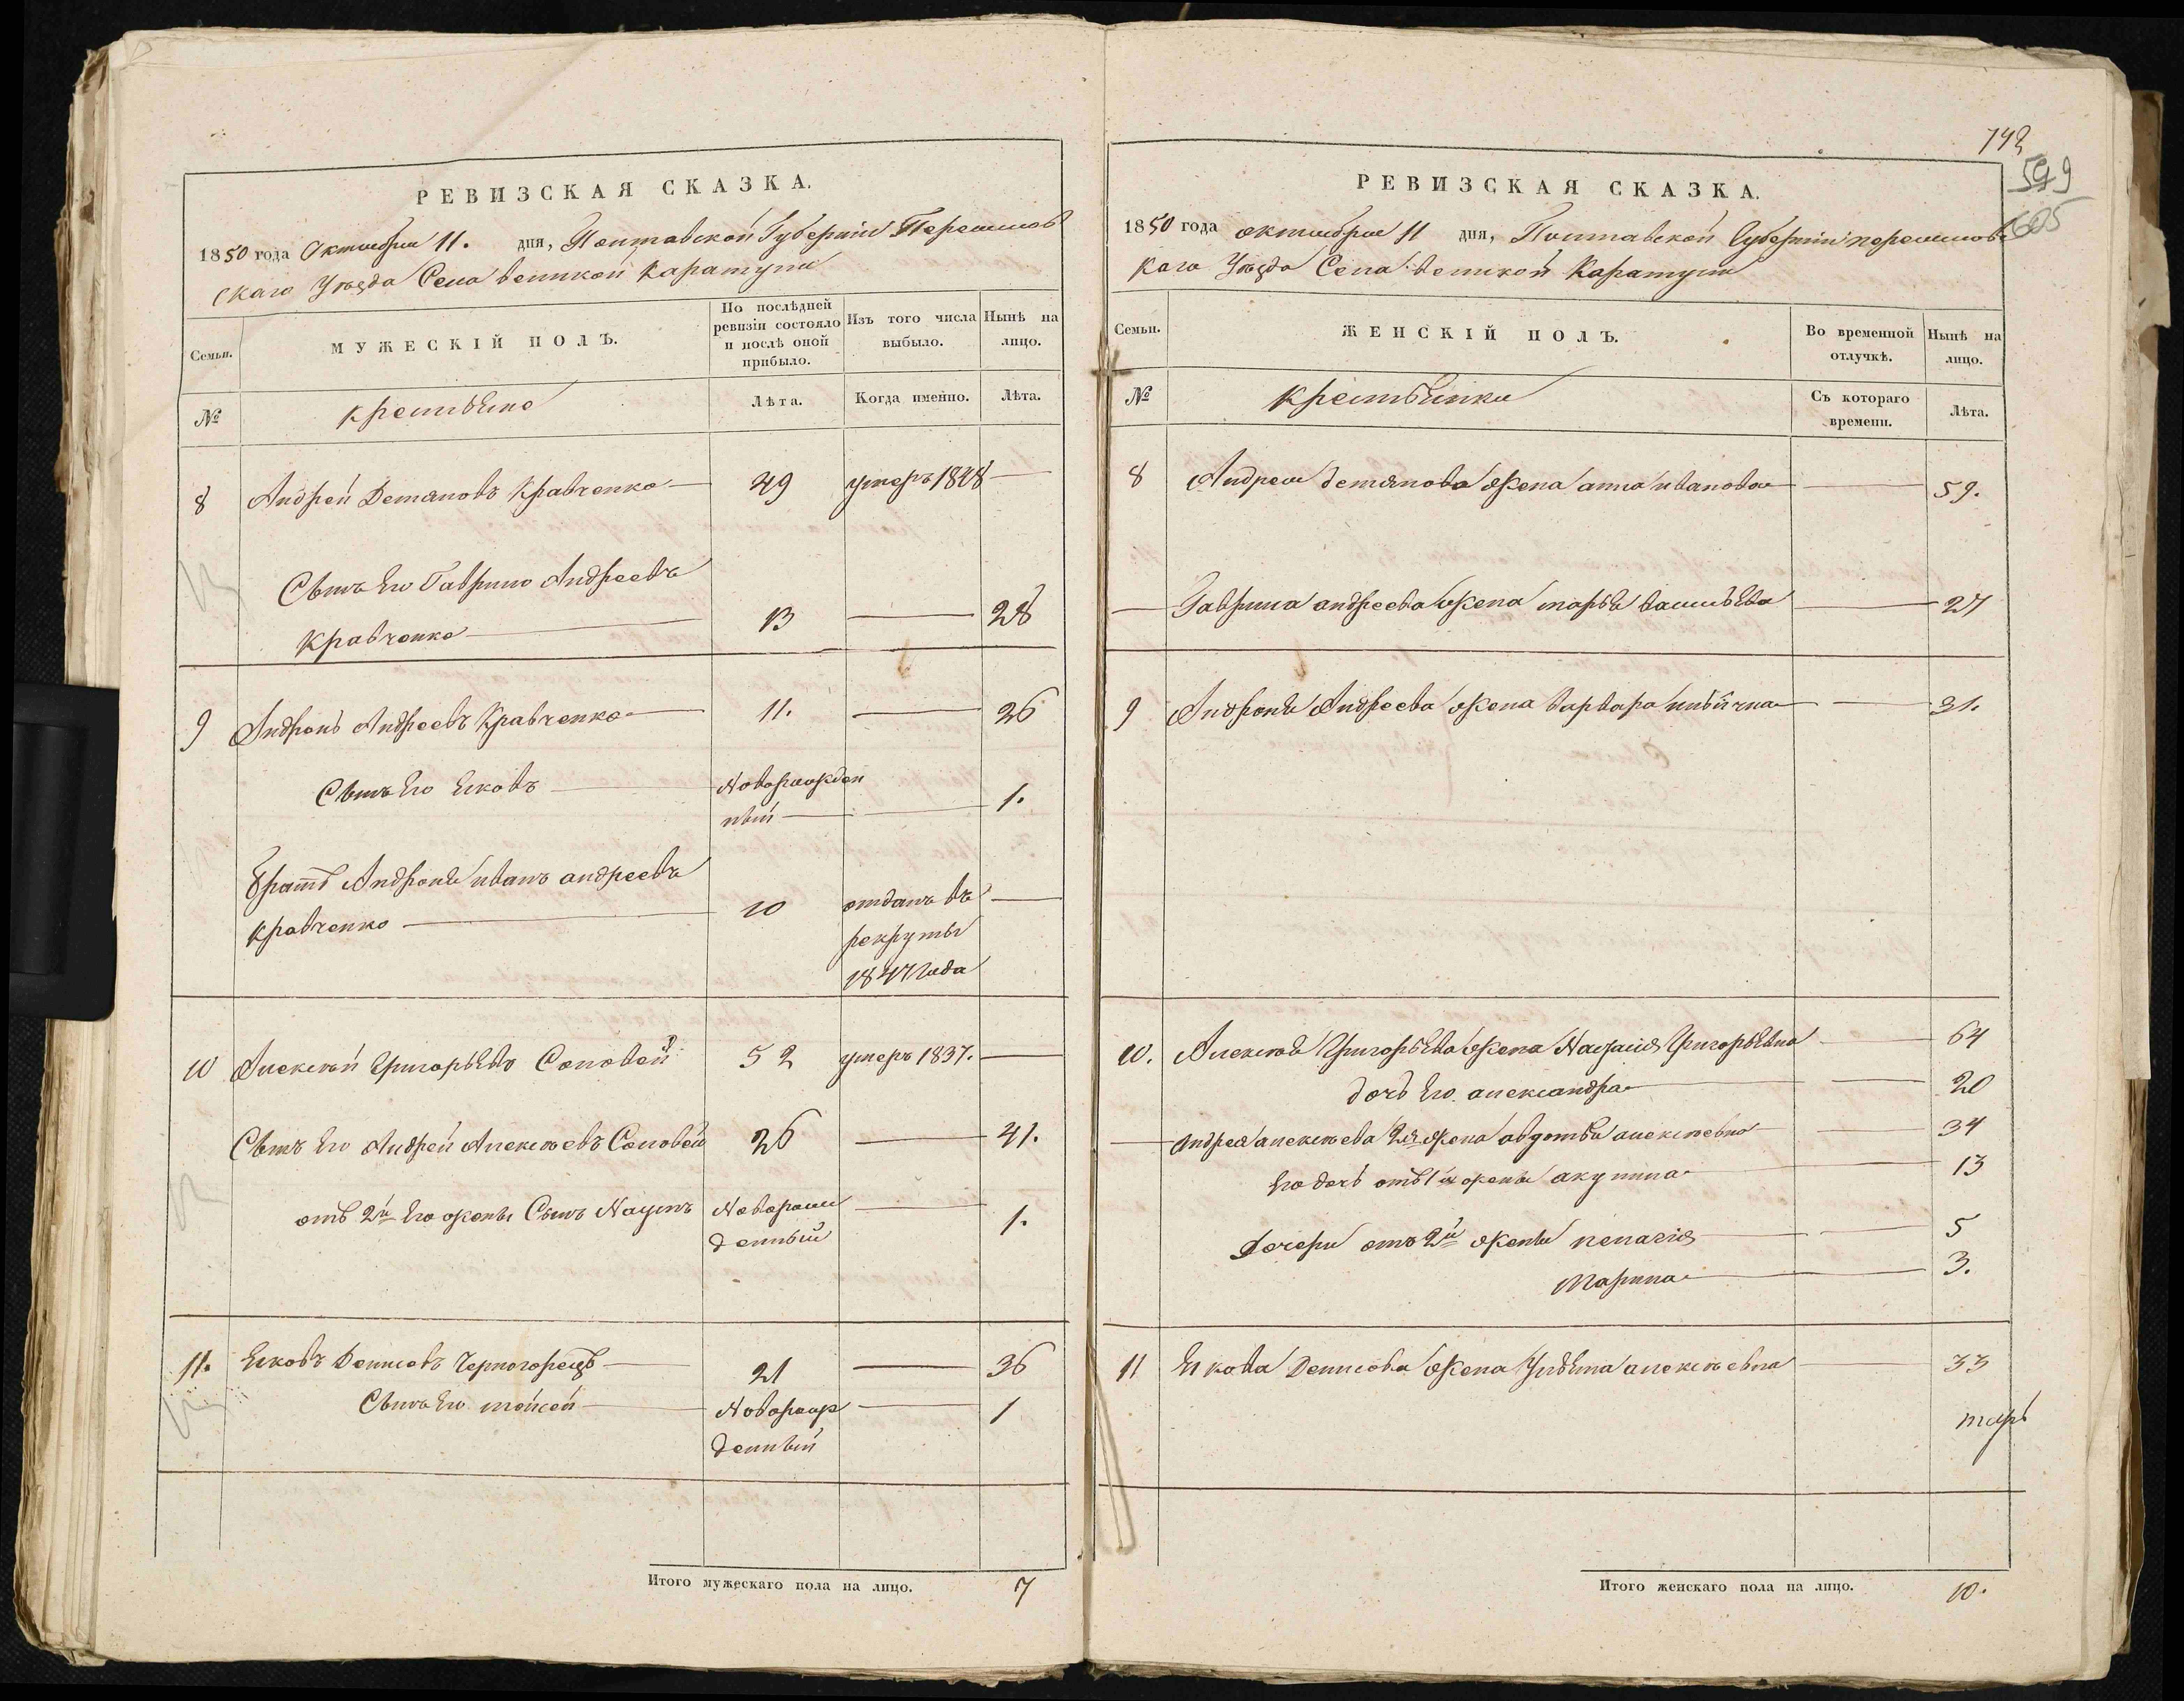 РЕВИЗСКАЯ СКАЗКА.
1850 года Октября 11. дня, Полтавской Губернии Переяслов
скаго Уѣзда Села великой каратули
Семьи.
МУЖЕСКІЙ ПОЛЪ.
По послѣдней ревизіи состояло и послѣ оной прибыло.
Изъ того числа выбыло.
Нынѣ на лицо.
№
крестьяне
Лѣта.
Когда именно.
Лѣта.
8 Андрей Демяновъ Кравченко 49 умеръ 1848
Сынъ Его Гаврило Андреевъ
кравченко 13 28
9 Андронъ Андреевъ Кравченко 11. 26
Сынъ Его Яковъ Новорожден
ный 1.
братъ Андрона иванъ андреевъ
кравченко 10 отданъ въ
рекруты
1847 года
10 Алексѣй Григорьевъ Соловей 52 умеръ 1837.
Сынъ Его Андрей Алексѣевъ Соловей 26 41.
отъ 2й Его жены Сынъ Наумъ Новорож
денный 1.
11. Яковъ Денисовъ Черногорецъ 21 36
Сынъ Его мойсей Новорож 1
денный
Итого мужескаго пола на лицо. 7
142
599
605
РЕВИЗСКАЯ СКАЗКА.
1850 года октября 11 дня, Полтавской Губернии переяслов
каго Уѣзда Села великой Каратули
Семьи.
ЖЕНСКІЙ ПОЛЪ.
Во временной отлучкѣ.
Нынѣ на лицо.
№
крестьянки
Съ котораго времени.
Лѣта.
8 Андрея демянова жена анна иванова 59.
Гаврила андреева жена марья васильева 27
9 Андрона Андреева жена варвара 31.
10. Алексѣя Григорьева жена Григорьевна 64
дочь Его александра 20
андрея алексѣева 2я жена авдотья алексѣевна 34
Его дочь отъ 1й жены акулина 13
Дочери отъ 2й жены пелагія 5
Марина 3.
11 Якова Денисова жена Ульяна алексѣевна 33
Итого женскаго пола на лицо. 10.